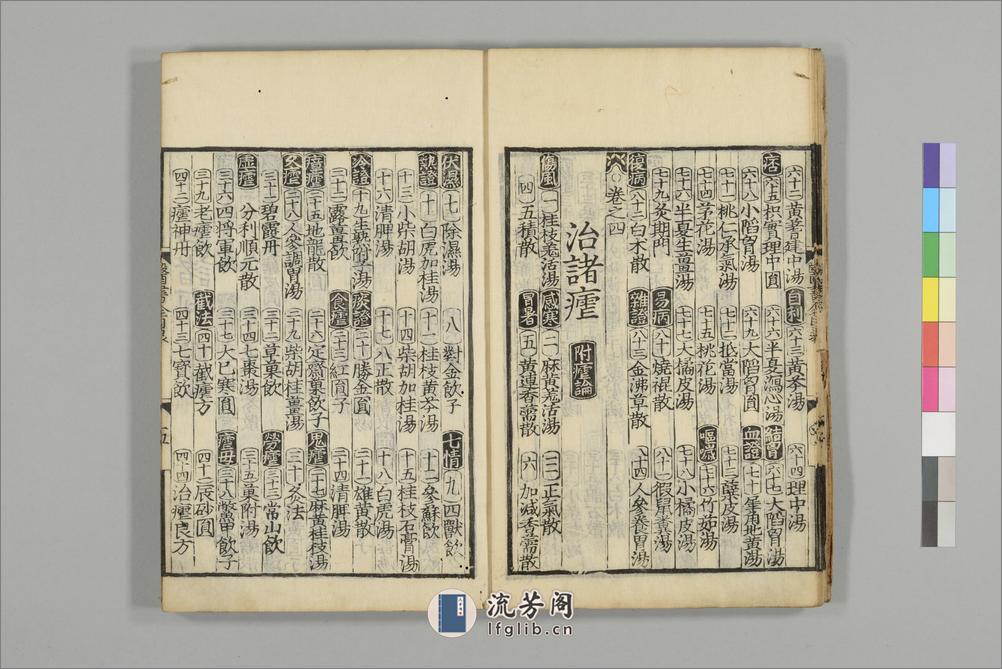 痞 六十二 黃耆建中湯 自利 六十三 黃芩湯 六十四 理中湯
六十五 枳實理中圓 六十六 半夏瀉心湯 結胷 六十七 大陷胷湯
六十八 小陷胷湯 六十九 大陷胷圓 血證 七十 地黃湯
七十一 桃仁承氣湯 七十二 抵當湯 七十三 蘖皮湯
七十四 茅花湯 七十五 桃花湯 嘔噦 七十六 竹茹湯
七十六 半夏生薑湯 七十七 大橘皮湯 七十八 小橘皮湯
七十九 灸期門 易病 八十 燒裩散 八十一 假鼠糞湯
復病 八十二 白朮散 雜證 八十三 金沸草散 八十四 人參養胃湯
卷之四
治諸瘧 附瘧論
傷風 一 桂枝羌活湯 感寒 二 麻黃羌活湯 三 正氣散
四 五積散 冒暑 五 黃連香薷散 六 加減香薷散
伏濕 七 除濕湯 八 對金飲子 七情 九 四獸飲
熱證 十 白虎加桂湯 十一 桂枝黃芩湯 十二 參蘇飲
十三 小柴胡湯 十四 柴胡加桂湯 十五 桂枝石膏湯
十六 清脾湯 十七 八正散 十八 白虎湯
冷證 十九 生熟附子湯 痰證 二十 勝金圓 二十一 雄黃散
二十二 露薑飲 食瘧 二十三 紅圓子 二十四 清脾湯
瘴瘧 二十五 地龍散 二十六 定齋菓飲子 鬼瘧 二十七 麻黃桂枝湯
久瘧 二十八 人參調胃湯 二十九 柴胡桂薑湯 三十 灸法
三十一 碧霞丹 三十二 草菓飲 勞瘧 三十三 常山飲
虛瘧 分利順元散 三十四 七棗湯 三十五 菓附湯
三十六 四將軍飲 三十七 大已寒圓 瘧母 三十八 鱉甲飲子
三十九 老瘧飲 截法 四十 截瘧方 四十一 辰砂圓
四十二 瘧神丹 四十三 七寶飲 四十四 治瘧良方
五
流芳阁
lfglib.cn